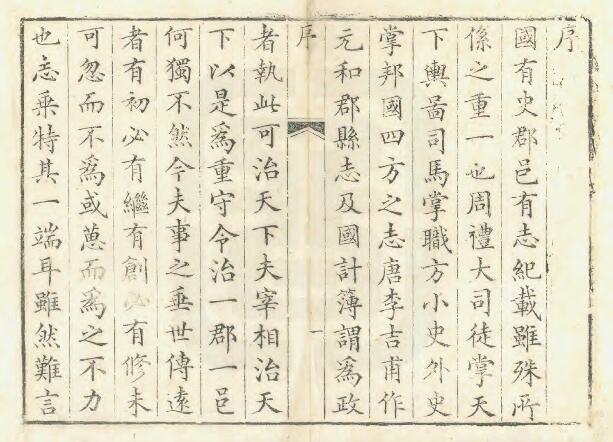 序
國有史郡邑有志紀載雖殊所
係之重一也周禮大司徒掌天
下輿圖司馬掌職方小史外史
掌邦國四方之志唐李吉甫作
元和郡縣志及國計簿謂爲政
序 一
者執此可治天下夫宰相治天
下以是爲重守令治一郡一邑
何獨不然今夫事之垂世傳遠
者有初必有繼有創必有修未
可忽而不爲或葸而爲之不力
也志乘特其一端耳雖然難言